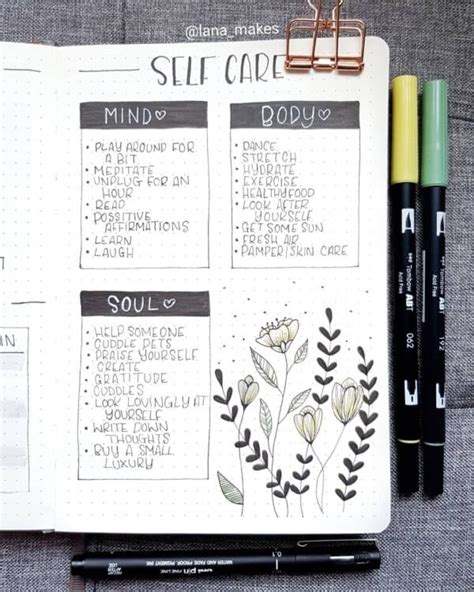 @lana_makes
SELF CARE
MIND
• PLAY AROUND FOR
A BIT
• MEDITATE
• UNPLUG FOR AN
HOUR
• READ
• POSSITIVE
AFFIRMATIONS
• LEARN
• LAUGH
BODY
• DANCE
• STRETCH
• HYDRATE
• EXERCISE
• HEALTHY FOOD
• LOOK AFTER
YOURSELF
• GET SOME SUN
• FRESH AIR
• PAMPER/SKIN CARE
SOUL
• HELP SOMEONE
• CUDDLE PETS
• PRAISE YOURSELF
• CREATE
• GRATITUDE
• CUDDLES
• LOOK LOVINGLY AT
YOURSELF
• WRITE DOWN
THOUGHTS
• BUY A SMALL
LUXURY
IN
Tombow ABT
Acid Free
062
Tombow ABT
Acid Free
192
uni pin FINE LINE
WATER AND FADE PROOF PIGMENT INK
0.1